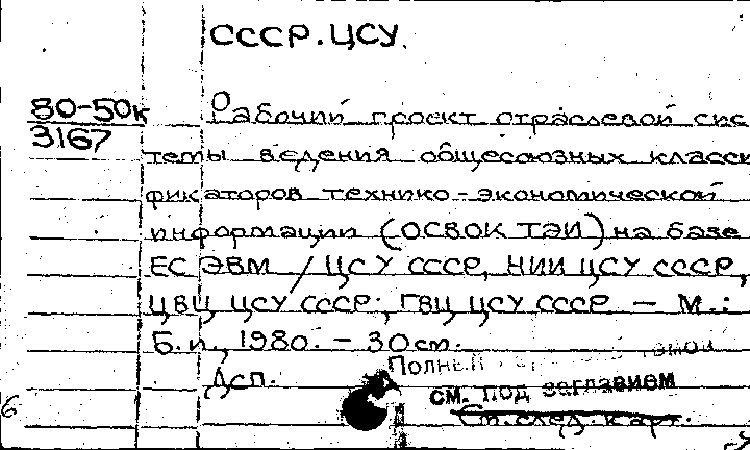 СССР. ЦСУ.
80-50к
3167
Рабочий проект отраслевой сис
темы ведения общесоюзных класси
фикаторов технико-экономической
информации (ОСВОК ТЭИ) на базе
ЕС ЭВМ / ЦСУ СССР, НИИ ЦСУ СССР,
ЦВЦ ЦСУ СССР; ГВЦ ЦСУ СССР. — М.:
Б.и., 1980. – 30 см.
Полный
Дсп.
см. под заглавием
См. след. карт.